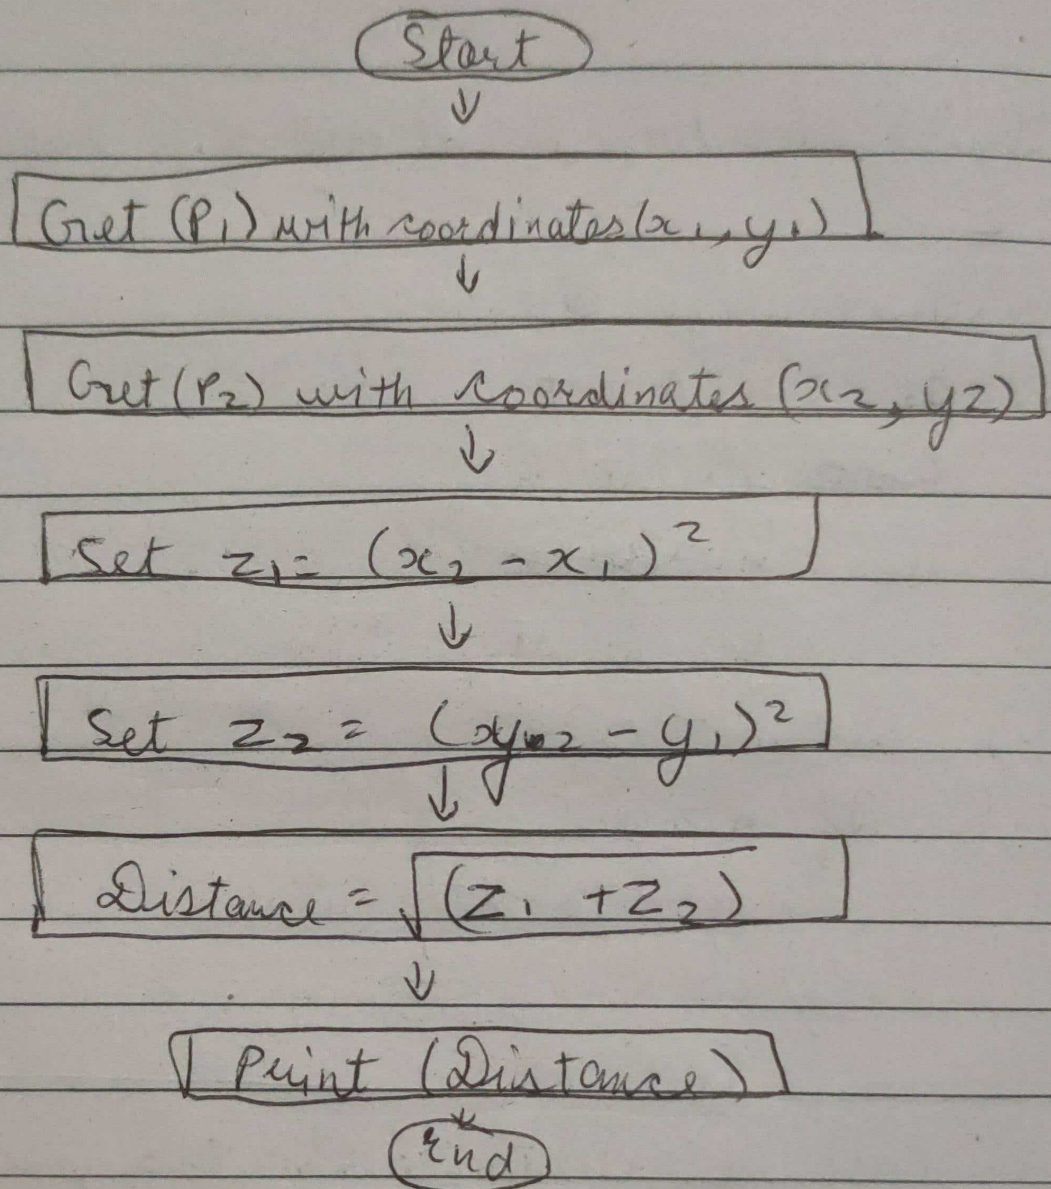 Start
↓
Get (P₁) with coordinates (x₁, y₁)
↓
Get (P₂) with coordinates (x₂, y2)
↓
Set z₁ = (x₂ - x₁)²
↓
Set z₂ = (y₂ - y₁)²
↓
Distance = √(z₁ + z₂)
↓
Print (Distance)
End